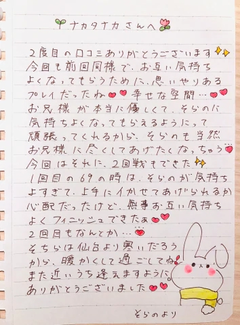 ナカタナカさんへ
2度目の口コミありがとうございます
今回も前回同様で、お互い気持ち
よくなってもらうために、思いやりある
プレイだったね 幸せな空間…
お兄様が本当に優しくて、そらのに
気持ちよくなってもらえるようにって
頑張ってくれるから、そらのも当然
お兄様に尽くしてあげたくなっちゃう
今回はそれに、2回戦もできた
1回目の69の時は、そらのが気持ち
よすぎて、上手にイかせてあげられるか
心配だったけど、無事お互い気持ち
よくフィニッシュできたぁ
2回目もなんとか…
そちらは仙台より寒いだろう
から、暖かくして過ごしてね
また近いうち逢えますように
ありがとうございました
そらのより